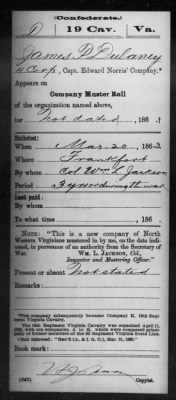 (Confederate.)
D 19 Cav. Va.
James D Dulaney
4 Corp, Capt. Edward Norris' Company.*
Appears on
Company Muster Roll
of the organization named above,
for Not dated, 186 .
Enlisted:
When Mar. 20, 1863
Where Frankfort
By whom Col. Wm L Jackson
Period 3 years or during the war
Last paid:
By whom
To what time , 186 .
NOTE: "This is a new company of North
Western Virginians mustered in by me, on the date indi-
cated, in pursuance of an authority from the Secretary of
War. WM. L. JACKSON, Col.,
Inspector and Mustering Officer."
Present or absent Not stated
Remarks:
*This company subsequently became Company H, 19th Regi-
ment Virginia Cavalry.
The 19th Regiment Virginia Cavalry was organized April 11,
1863, with ten companies, A to K, which were composed princi-
pally of former members of the 3d Regiment Virginia State Line.
Book mark:
(642) Copyist.